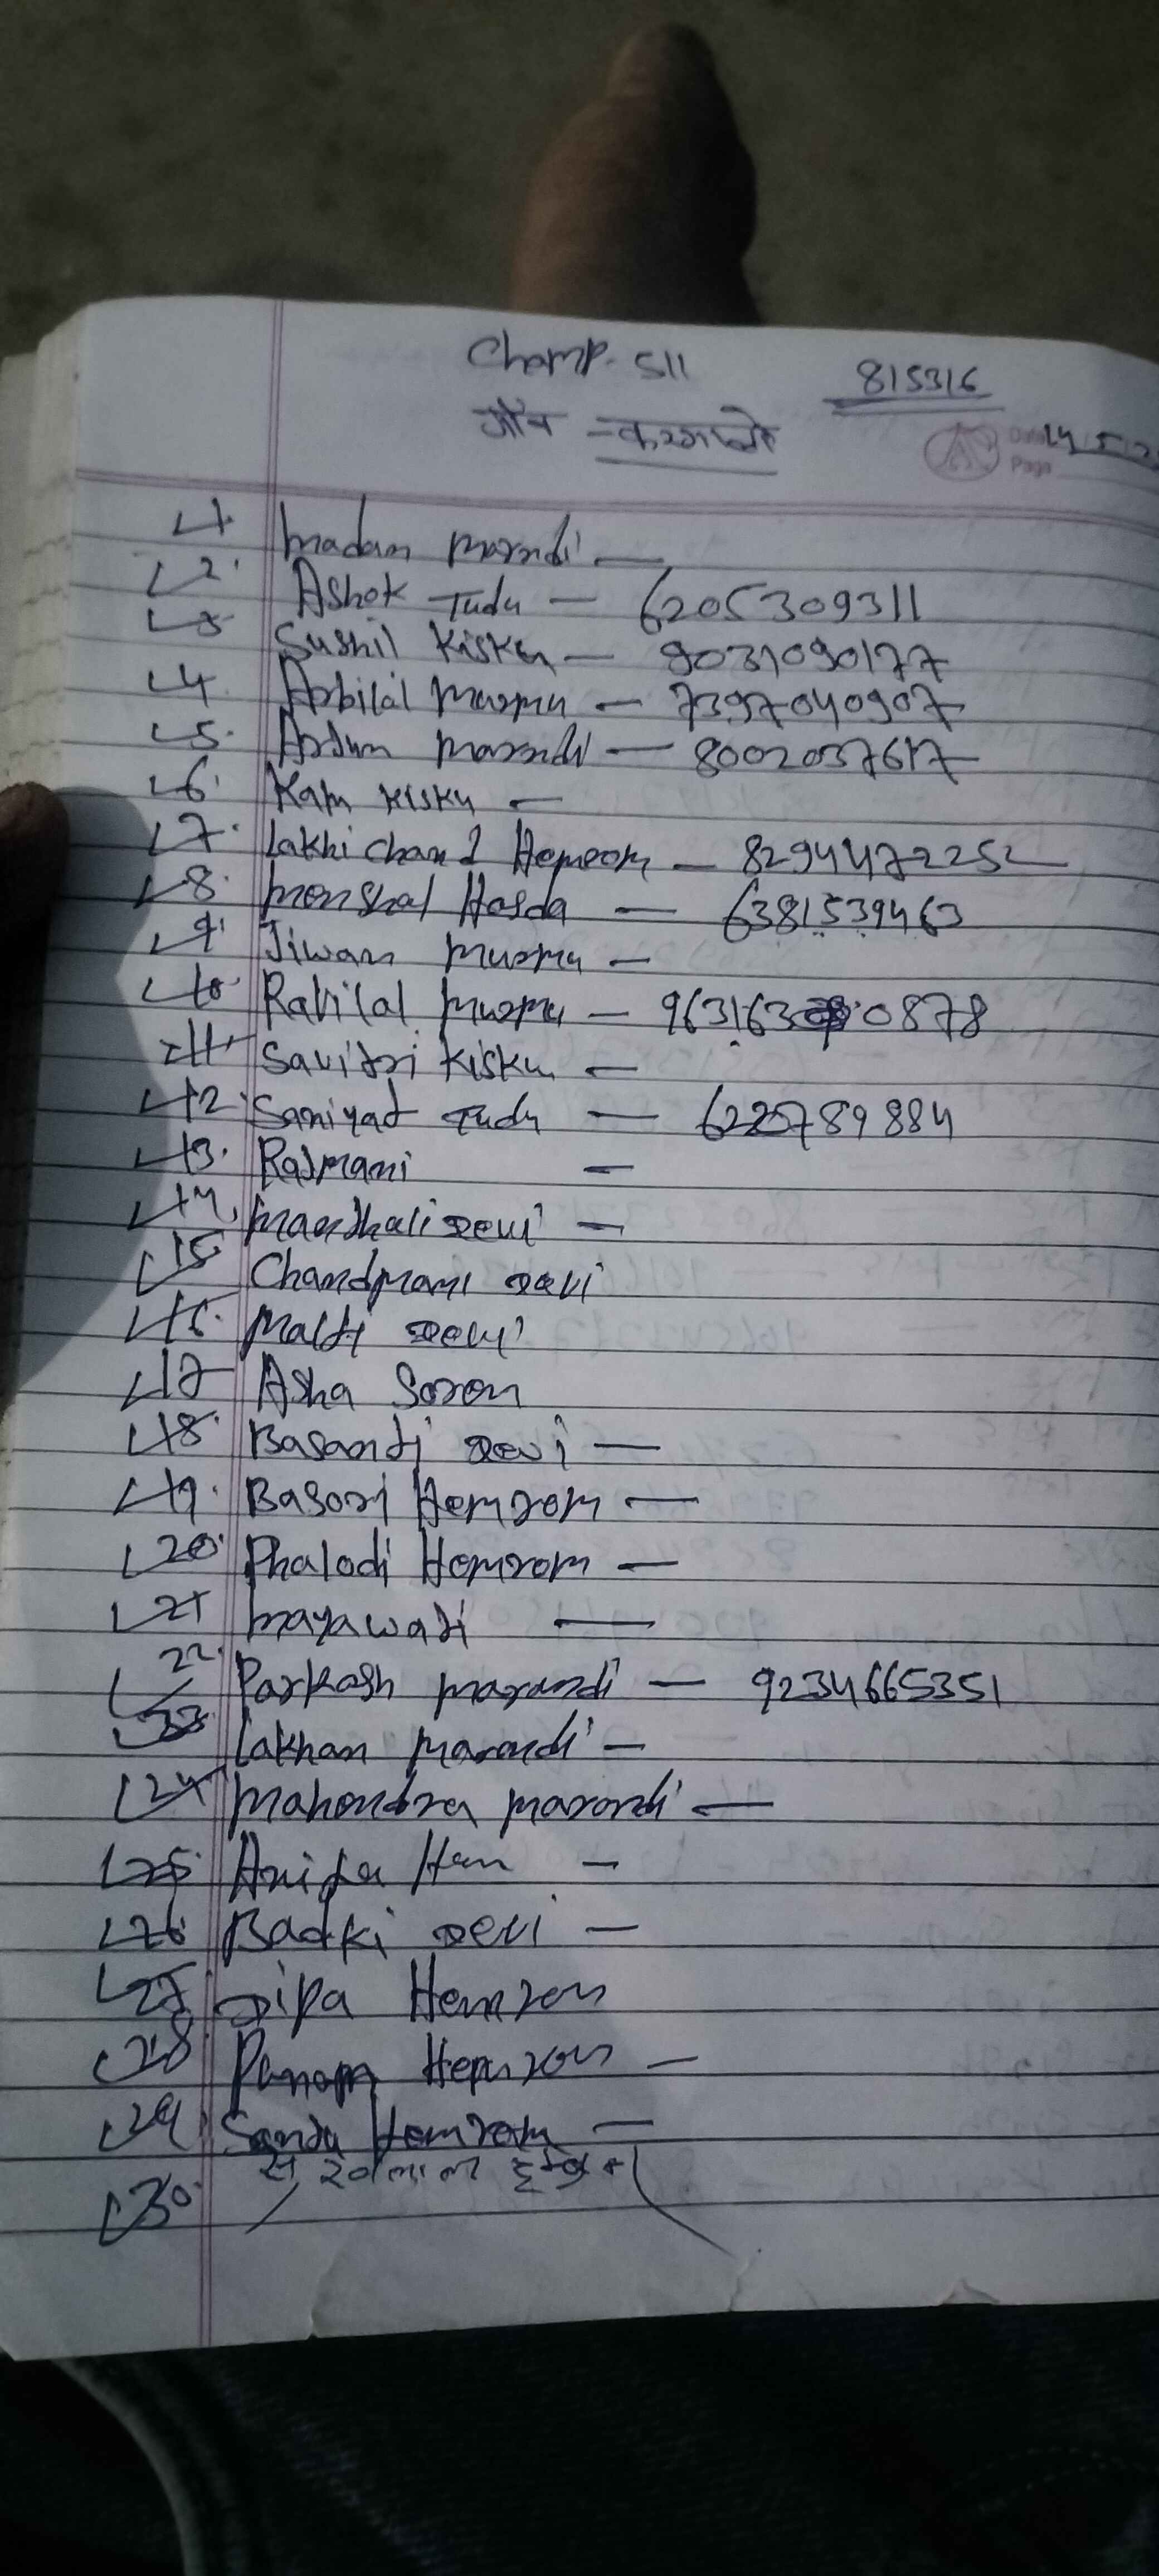 Champ. S11
815316
गाँव -
Date 14 5
Page
1. Madan Marndi —
2. Ashok Tudu — 6205309311
3. Sushil Kisku — 9031090177
4. Arbilal Murmu — 7397040907
5. Marandi — 8002037617
6. Kisku —
7. Lakhichand Hemrom — 8294472252
8. Monshal Hasda — 6381539463
9. Jiwan Murmu —
10. Rabilal Murmu — 9631630878
11. Savitri Kisku —
12. Saniyat Tudu —
13. Rajmani —
14. Devi —
15. Chandmani Devi
16. Malti Devi
17 Asha Soren
18. Basanti Devi —
19. Basori Hemrom —
20. Phalodi Hemrom —
21 Mayawati —
22. Parkash Marandi — 9234665351
23 Lakhan Marandi —
24 Mahendra Marandi —
25. Anita Hem —
26 Badki Devi —
27 Dipa Hemrom
28. Hemrom —
29 Hemrom —
30.